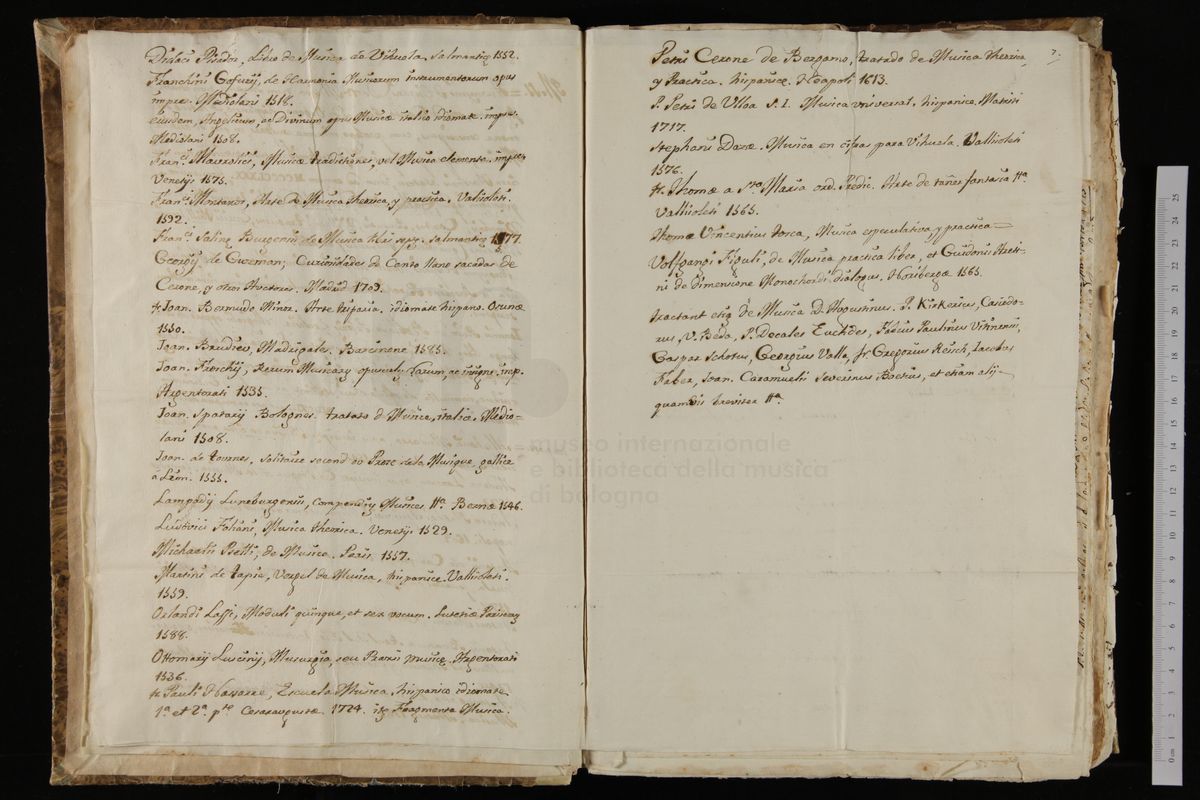 Didaci Pisador, Libro de Musica de Vihuela, Salmanticę 1552.
Franchini Gofurij, de Harmonia Musicorum Instrumentorum opus
impres. Mediolani 1518.
eiusdem, Angelicum, ac Divinum opus Musicæ italico idiomate. impres.
Mediolani 1508.
Fran.ci Maurolici, Musicæ traditiones, vel Musica elementa. impres.
Venetijs 1575.
Fran.ci Montanos, Arte de Musica theorica, y practica. Vallisoleti.
1592.
Fran.ci Salinę Burgensis de Musica libri septẽ. Salmanticę 1577.
Georgij de Guzman; Curiosidades de Canto llano sacadas de
Cerone, y otros Auctores. Madrid 1709.
fr. Joan. Bermudo Minor. Arte trifaria. idiomate hispano. Osunæ
1550.
Joan. Brudieu, Madrigales. Barcinone 1585.
Joan. Froschij, Rerum Musicarũ opusculũ rarum, ac insigne. imp.
Argentorati 1535.
Joan. Spatarij Bolognes. tratato di Musica, italicæ. Medio-
lani 1508.
Joan. de tournes, Solitaire second ou Prose de la Musique, gallice
a Leon. 1555.
Lampadij Luneburgensis, Compendiũ Musices tta. Bernæ 1546.
Ludovici Foliani, Musica theorica. Venetijs 1529.
Michaelis Pselli, de Musica. Paris. 1557.
Martini de tapia, Vergel de Musica, hispanice. Vallisoleti.
1559.
Orlandi Lassi, Moduli quinque, et sex vocum. Lutetiæ Parisiorũ
1588.
Ottomarij Luscinij, Musurgia, seu Praxis musicę. Argentorati
1536.
fr. Pauli Navarre, Escuela Musica hispanico idiomate
1.a et 2.a p.te Cesaraugustæ. 1724. itẽ Fragmenta Musica.
7.
Petri Cerone de Bergamo, tratado de Musica theorica
y Practica. hispanicę. Neapoli 1613.
P. Petri de Ulloa S. I. Musica universal. hispanice. Matriti
1717.
Stephani Dazæ. Musica en cifras para Vihuela. Vallisoleti
1576.
fr. Thomæ a S.ta Maria ord. Predic. Arte de tañer fantasia tta.
Vallisoleti 1565.
Thomæ Vincentius tosca, Musica especulativa, y practica
Volfgangi Figuli, de Musica practica liber, et Guidonis Areti-
ni de dimensione Monochordi dialogus. Noribergæ 1565.
tractant etiã de Musica D. Augustinus. P. Kirkerius, Casiodo-
rus, V. Beda, P. Decales Euclides, Fabius Paulinus Vtinensis,
Gaspar Schotus, Georgius Valla, fr. Gregorius Reisch, Iacobus
Faber, Joan. Caramuelis Severinus Boetius, et etiam alij
quamvis breviter tta.
museo internazionale
e biblioteca della musica
di bologna
0 cm 1 2 3 4 5 6 7 8 9 10 11 12 13 14 15 16 17 18 19 20 21 22 23 24 25